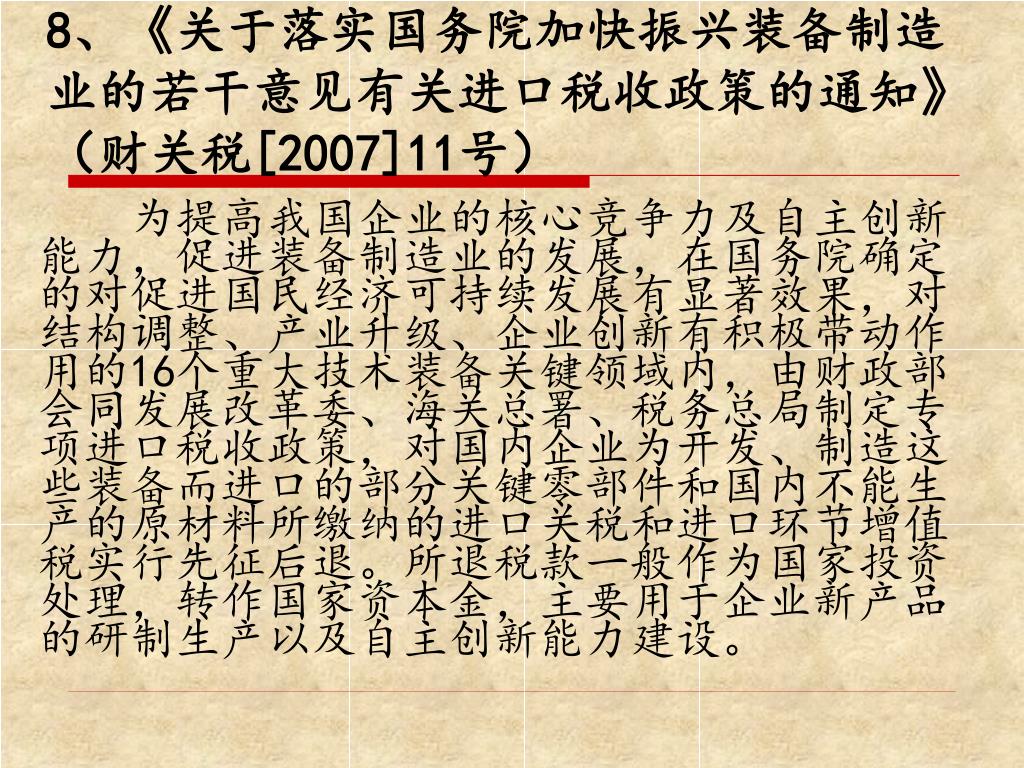 8、《关于落实国务院加快振兴装备制造
业的若干意见有关进口税收政策的通知》
（财关税[2007]11号）
为提高我国企业的核心竞争力及自主创新
能力，促进装备制造业的发展，在国务院确定
的对促进国民经济可持续发展有显著效果，对
结构调整、产业升级、企业创新有积极带动作
用的16个重大技术装备关键领域内，由财政部
会同发展改革委、海关总署、税务总局制定专
项进口税收政策，对国内企业为开发、制造这
些装备而进口的部分关键零部件和国内不能生
产的原材料所缴纳的进口关税和进口环节增值
税实行先征后退。所退税款一般作为国家投资
处理，转作国家资本金，主要用于企业新产品
的研制生产以及自主创新能力建设。